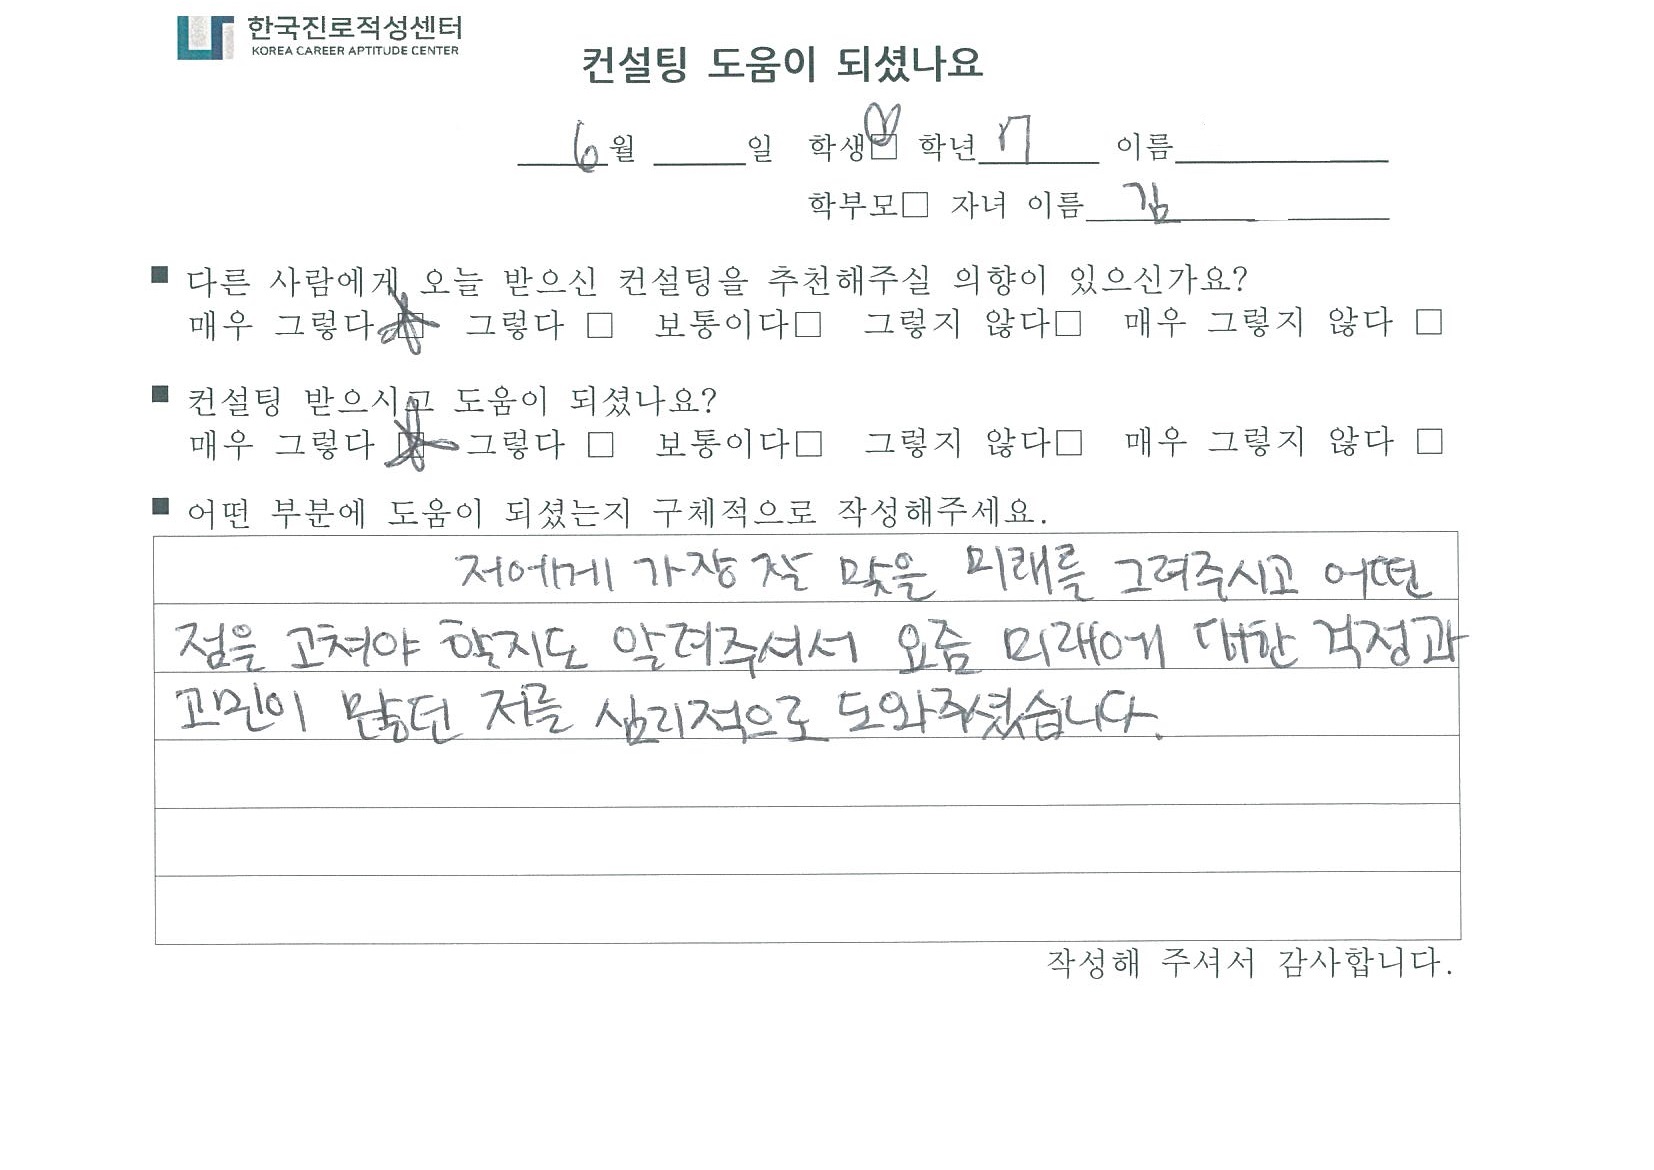 한국진로적성센터
KOREA CAREER APTITUDE CENTER
컨설팅 도움이 되셨나요
6월 일 학생□ 학년 7 이름
학부모□ 자녀 이름 김
■ 다른 사람에게 오늘 받으신 컨설팅을 추천해주실 의향이 있으신가요?
매우 그렇다 □ 그렇다 □ 보통이다□ 그렇지 않다□ 매우 그렇지 않다 □
■ 컨설팅 받으시고 도움이 되셨나요?
매우 그렇다 □ 그렇다 □ 보통이다□ 그렇지 않다□ 매우 그렇지 않다 □
■ 어떤 부분에 도움이 되셨는지 구체적으로 작성해주세요.
저에게 가장 잘 맞을 미래를 그려주시고 어떤
점을 고쳐야 할지도 알려주셔서 요즘 미래에 대한 걱정과
고민이 많던 저를 심리적으로 도와주셨습니다.
작성해 주셔서 감사합니다.